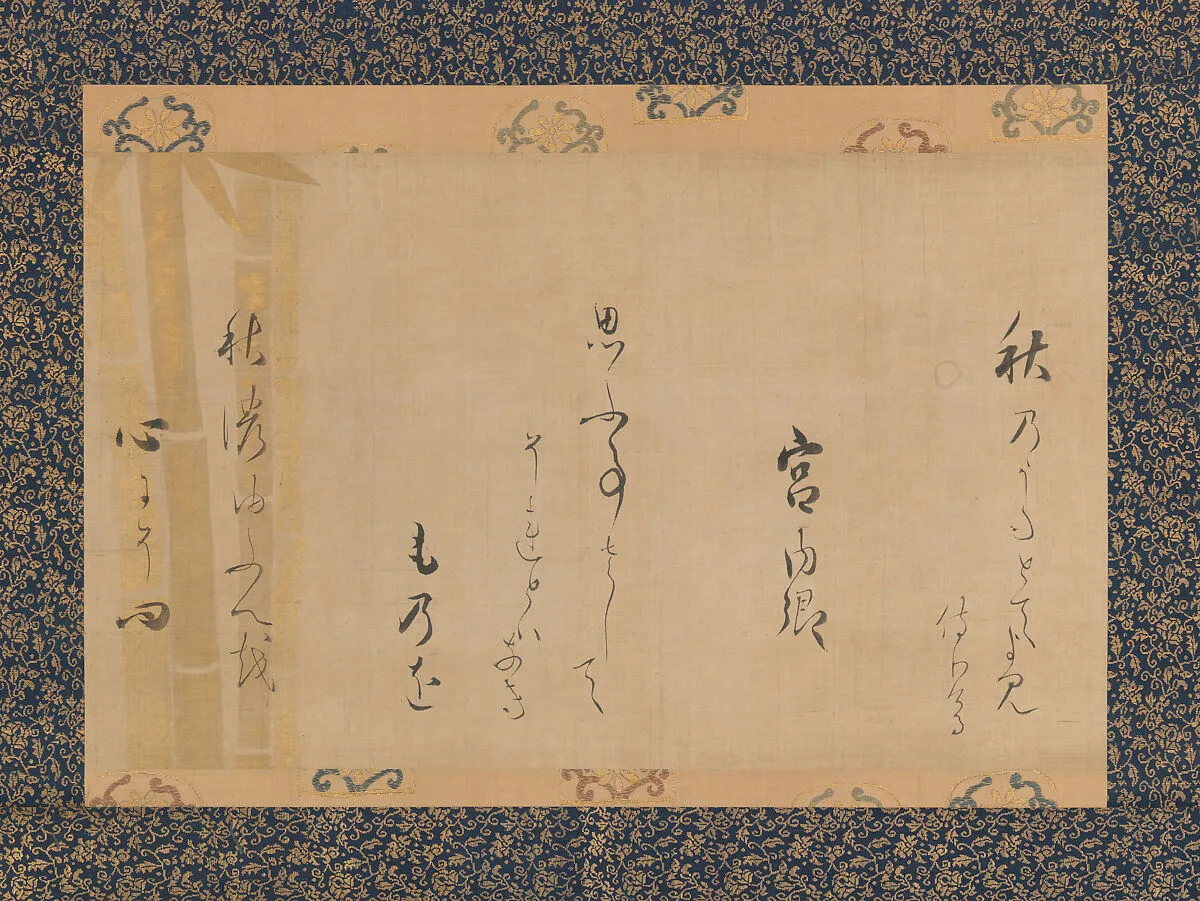 秋乃うたとてよ見
侍りける
宮内卿
思ふ事さして
それとハなき
も乃を
秋濃ゆふへ越
心にそ問